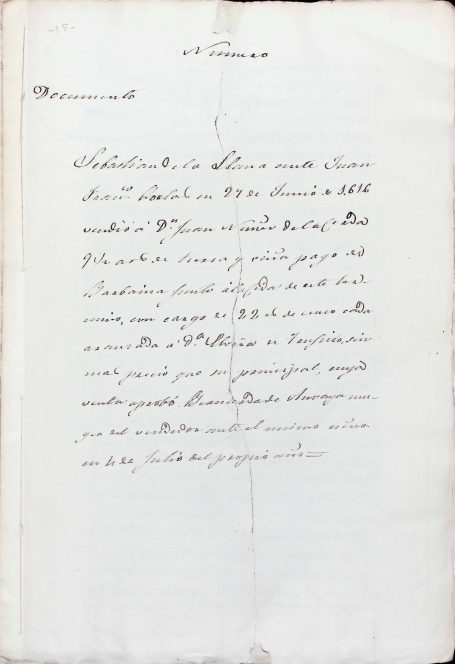 -15-
Numero
Documento
Sebastian de la Llana ante Juan
Fran.co en 27 de Junio de 1.616
vendió á D.n Juan Nuñez de la Cerda
de tierra y viña pago de
Barbaina junto de este ter-
mino, con cargo de 22 de censo cada
aranzada á D.a Elvira sin
mas precio que su principal, cuya
venta aprobó de Auraza mu-
ger del vendedor ante el mismo escno
en 4 de Julio del propio año=